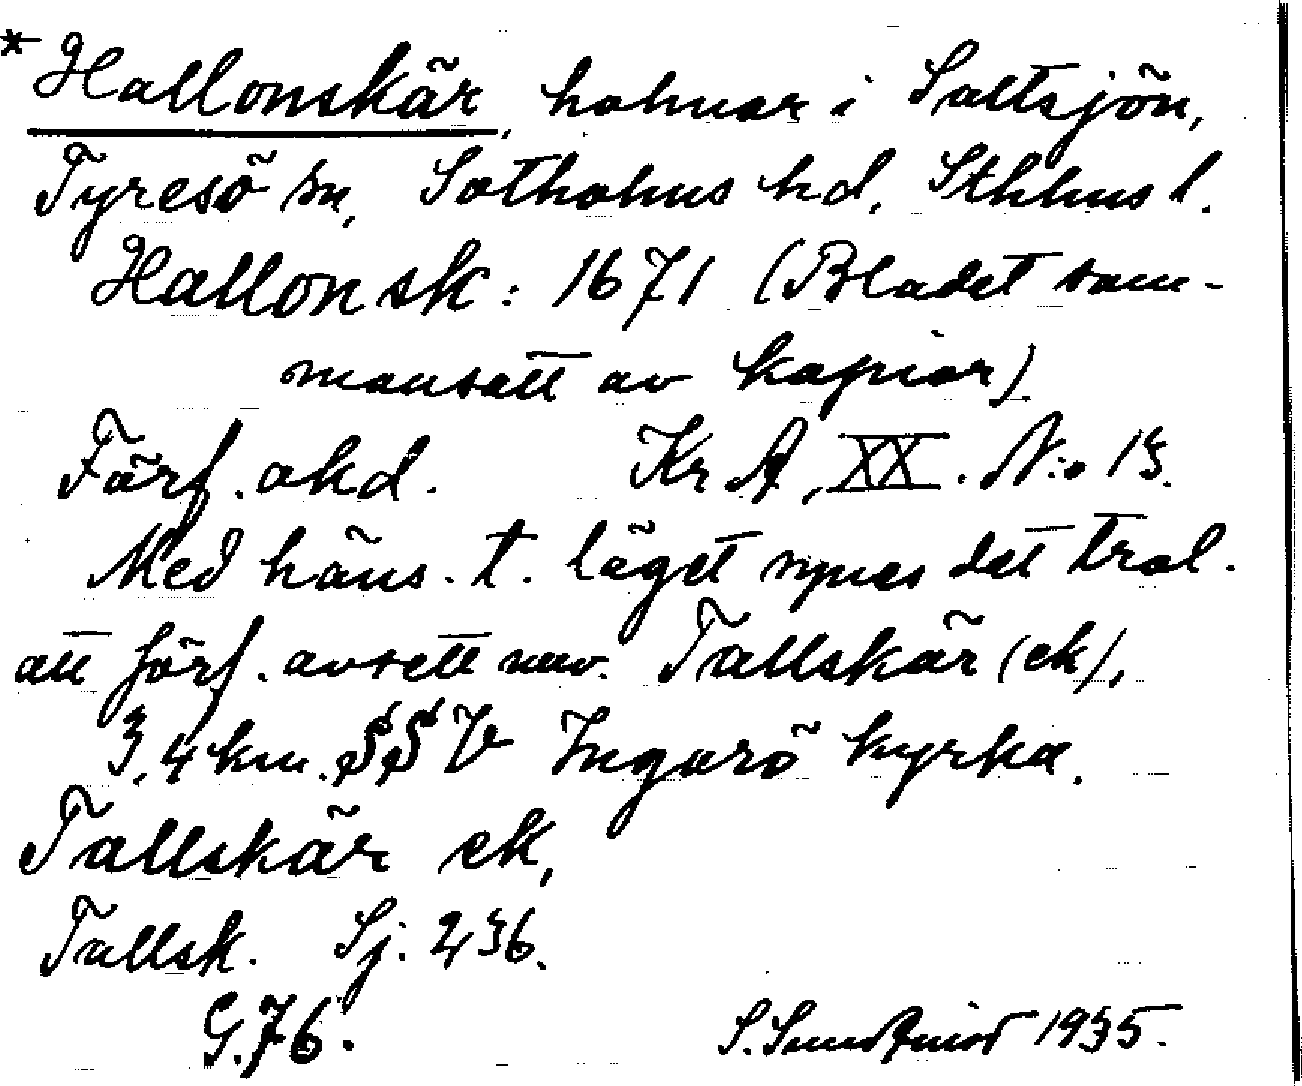 * Hallonskär, holmar i Saltsjön,
Tyresö sn, Sotholms hd, Sthlms l.
Hallonsk: 1671 (Bladet sam-
mansatt av kopior)
Förf. okd. Kr A, XX. N:o 13.
Med häns. t. läget synes det trol.
att förf. avsett nuv. Tallskär (ek),
3,4 km. SSV Ingarö kyrka.
Tallskär ek,
Tallsk. Sj. 236.
G.76. S. Sundqvist 1935.